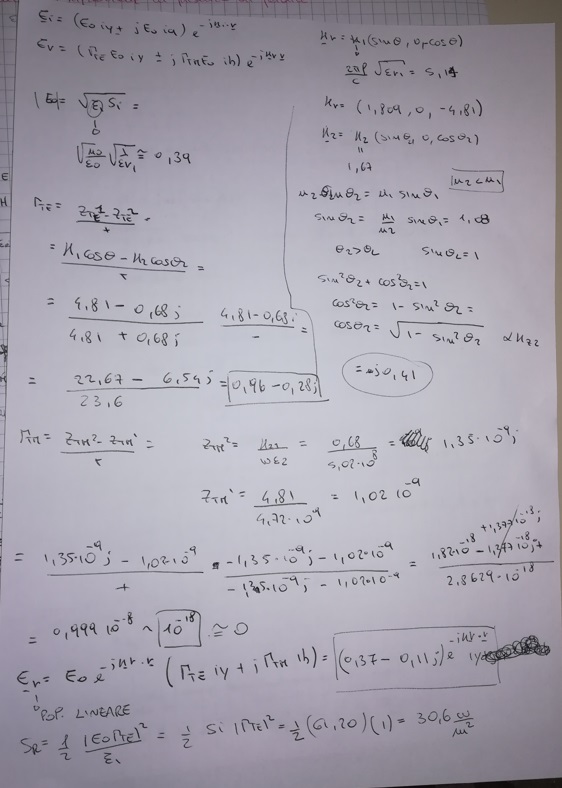 Ei = (E0 iy + j E0 iq) e^-jk·r
Er = (ΓTE E0 iy ± j ΓTM E0 ih) e^-jkr·r
kr = k1 (sinθ, 0, -cosθ)
2πf/c √εr1 = 5,14
|E0| = √ξ Si =
√μ2/ε0 √1/εr1 ≅ 0,39
kr = (1,809, 0, -4,81)
k2 = k2 (sinθ2, 0, cosθ2)
1,67
k2 sinθ2 = k1 sinθ1
k2 < k1
sinθ2 = k1/k2 sinθ1 = 1,08
θ2 > θc   sinθc = 1
sin²θ2 + cos²θ2 = 1
cos²θ2 = 1 - sin²θ2 =
cosθ2 = √1 - sin²θ2   kz2
= -j0,41
ΓTE = ZTE¹ - ZTE² / + =
= k1 cosθ - k2 cosθ2 / + =
= 4,81 - 0,68j / 4,81 + 0,68j   4,81 - 0,68j / - =
= 22,67 - 6,54j / 23,6 = 0,96 - 0,28j
ΓTM = ZTM² - ZTM¹ / + =
ZTM² = kz2 / ωε2 = 0,68 / 5,02·10^8 = 1,35·10^-9 j
ZTM¹ = 4,81 / 4,72·10^-9 = 1,02 10^-9
= 1,35·10^-9 j - 1,02·10^-9 / +   -1,35·10^-9 j - 1,02·10^-9 / -1,35·10^-9 j - 1,02·10^-9 = 1,82·10^-18 / 2,8629·10^-18
= 0,999 10^-8 ~ 10^-18 ≅ 0
Er = E0 e^-jkr·r (ΓTE iy + j ΓTM ih) = (0,37 - 0,11j) e^-jkr·r iy
POP. LINEARE
SR = 1/2 |E0 ΓTE|² / ξ1 = 1/2 Si |ΓTE|² = 1/2 (61,20) (1) = 30,6 w/m²